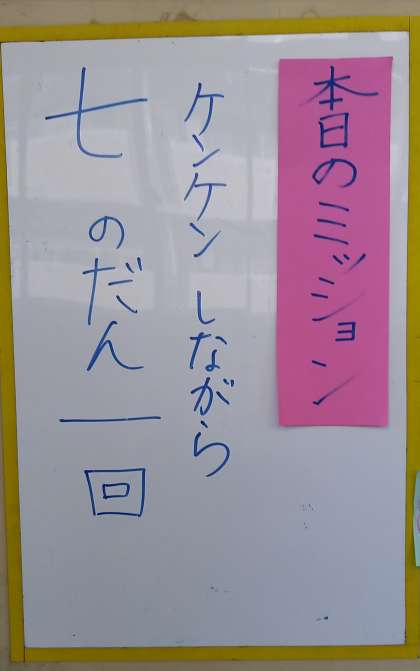 本日のミッション
ケンケンしながら
七のだん一回